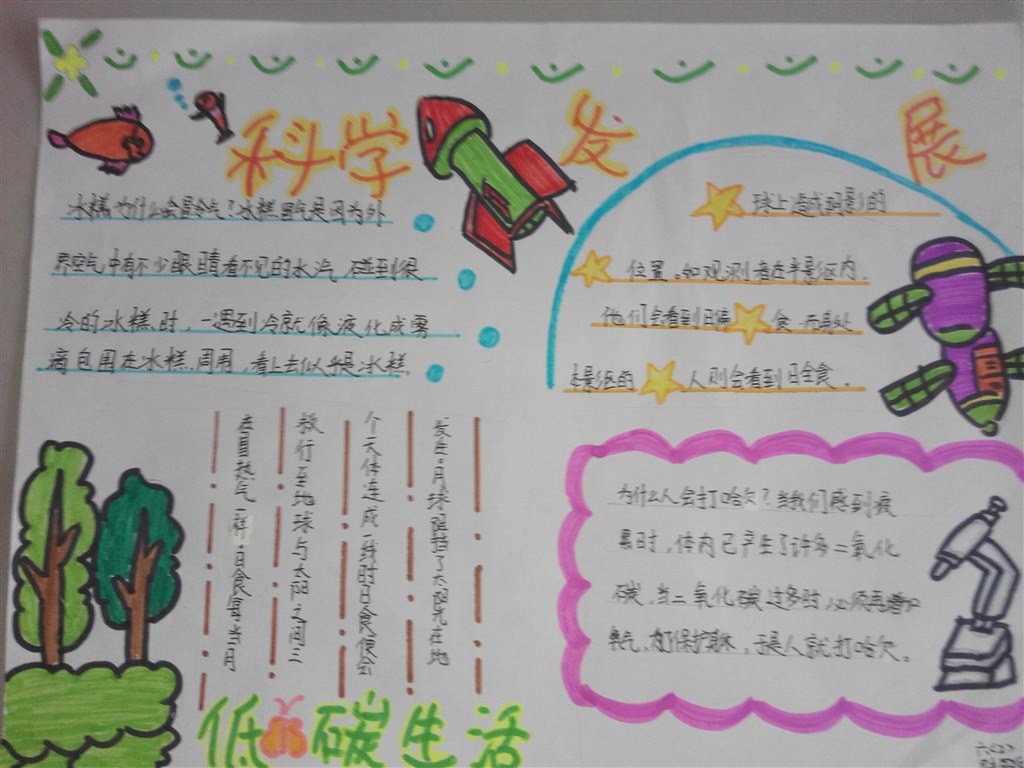 科学发展
冰糕为什么会冒冷气?冰糕冒气是因为外
界空气中有不少眼睛看不见的水汽,碰到很
冷的冰糕时,一遇到冷就像液化成雾
滴包围在冰糕周围,看上去似乎是冰糕
在冒热气一样.日食每当月
球行至地球与太阳之间三
个天体连成一线时日食便会
发生.月球阻挡了太阳光在地
球上造成阴影的
位置。如观测者在半影区内,
他们会看到日偏食.而身处
本影区的人则会看到日全食。
为什么人会打哈欠?当我们感到疲
累时,体内已产生了许多二氧化
碳,当二氧化碳过多时,必须再
氧气,来保护身体,于是人就打哈欠。
低碳生活
六(2)